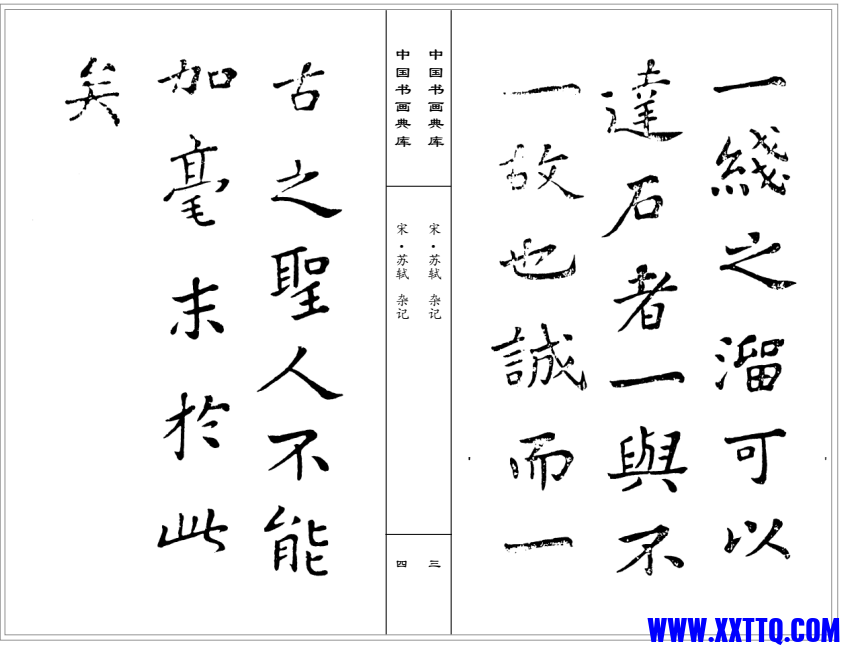 一綫之溜可以
達石者一與不
一故也誠而一
中国书画典库
宋・苏轼 杂记
三
中国书画典库
宋・苏轼 杂记
四
古之聖人不能
加毫末於此
矣
WWW.XXTTQ.COM